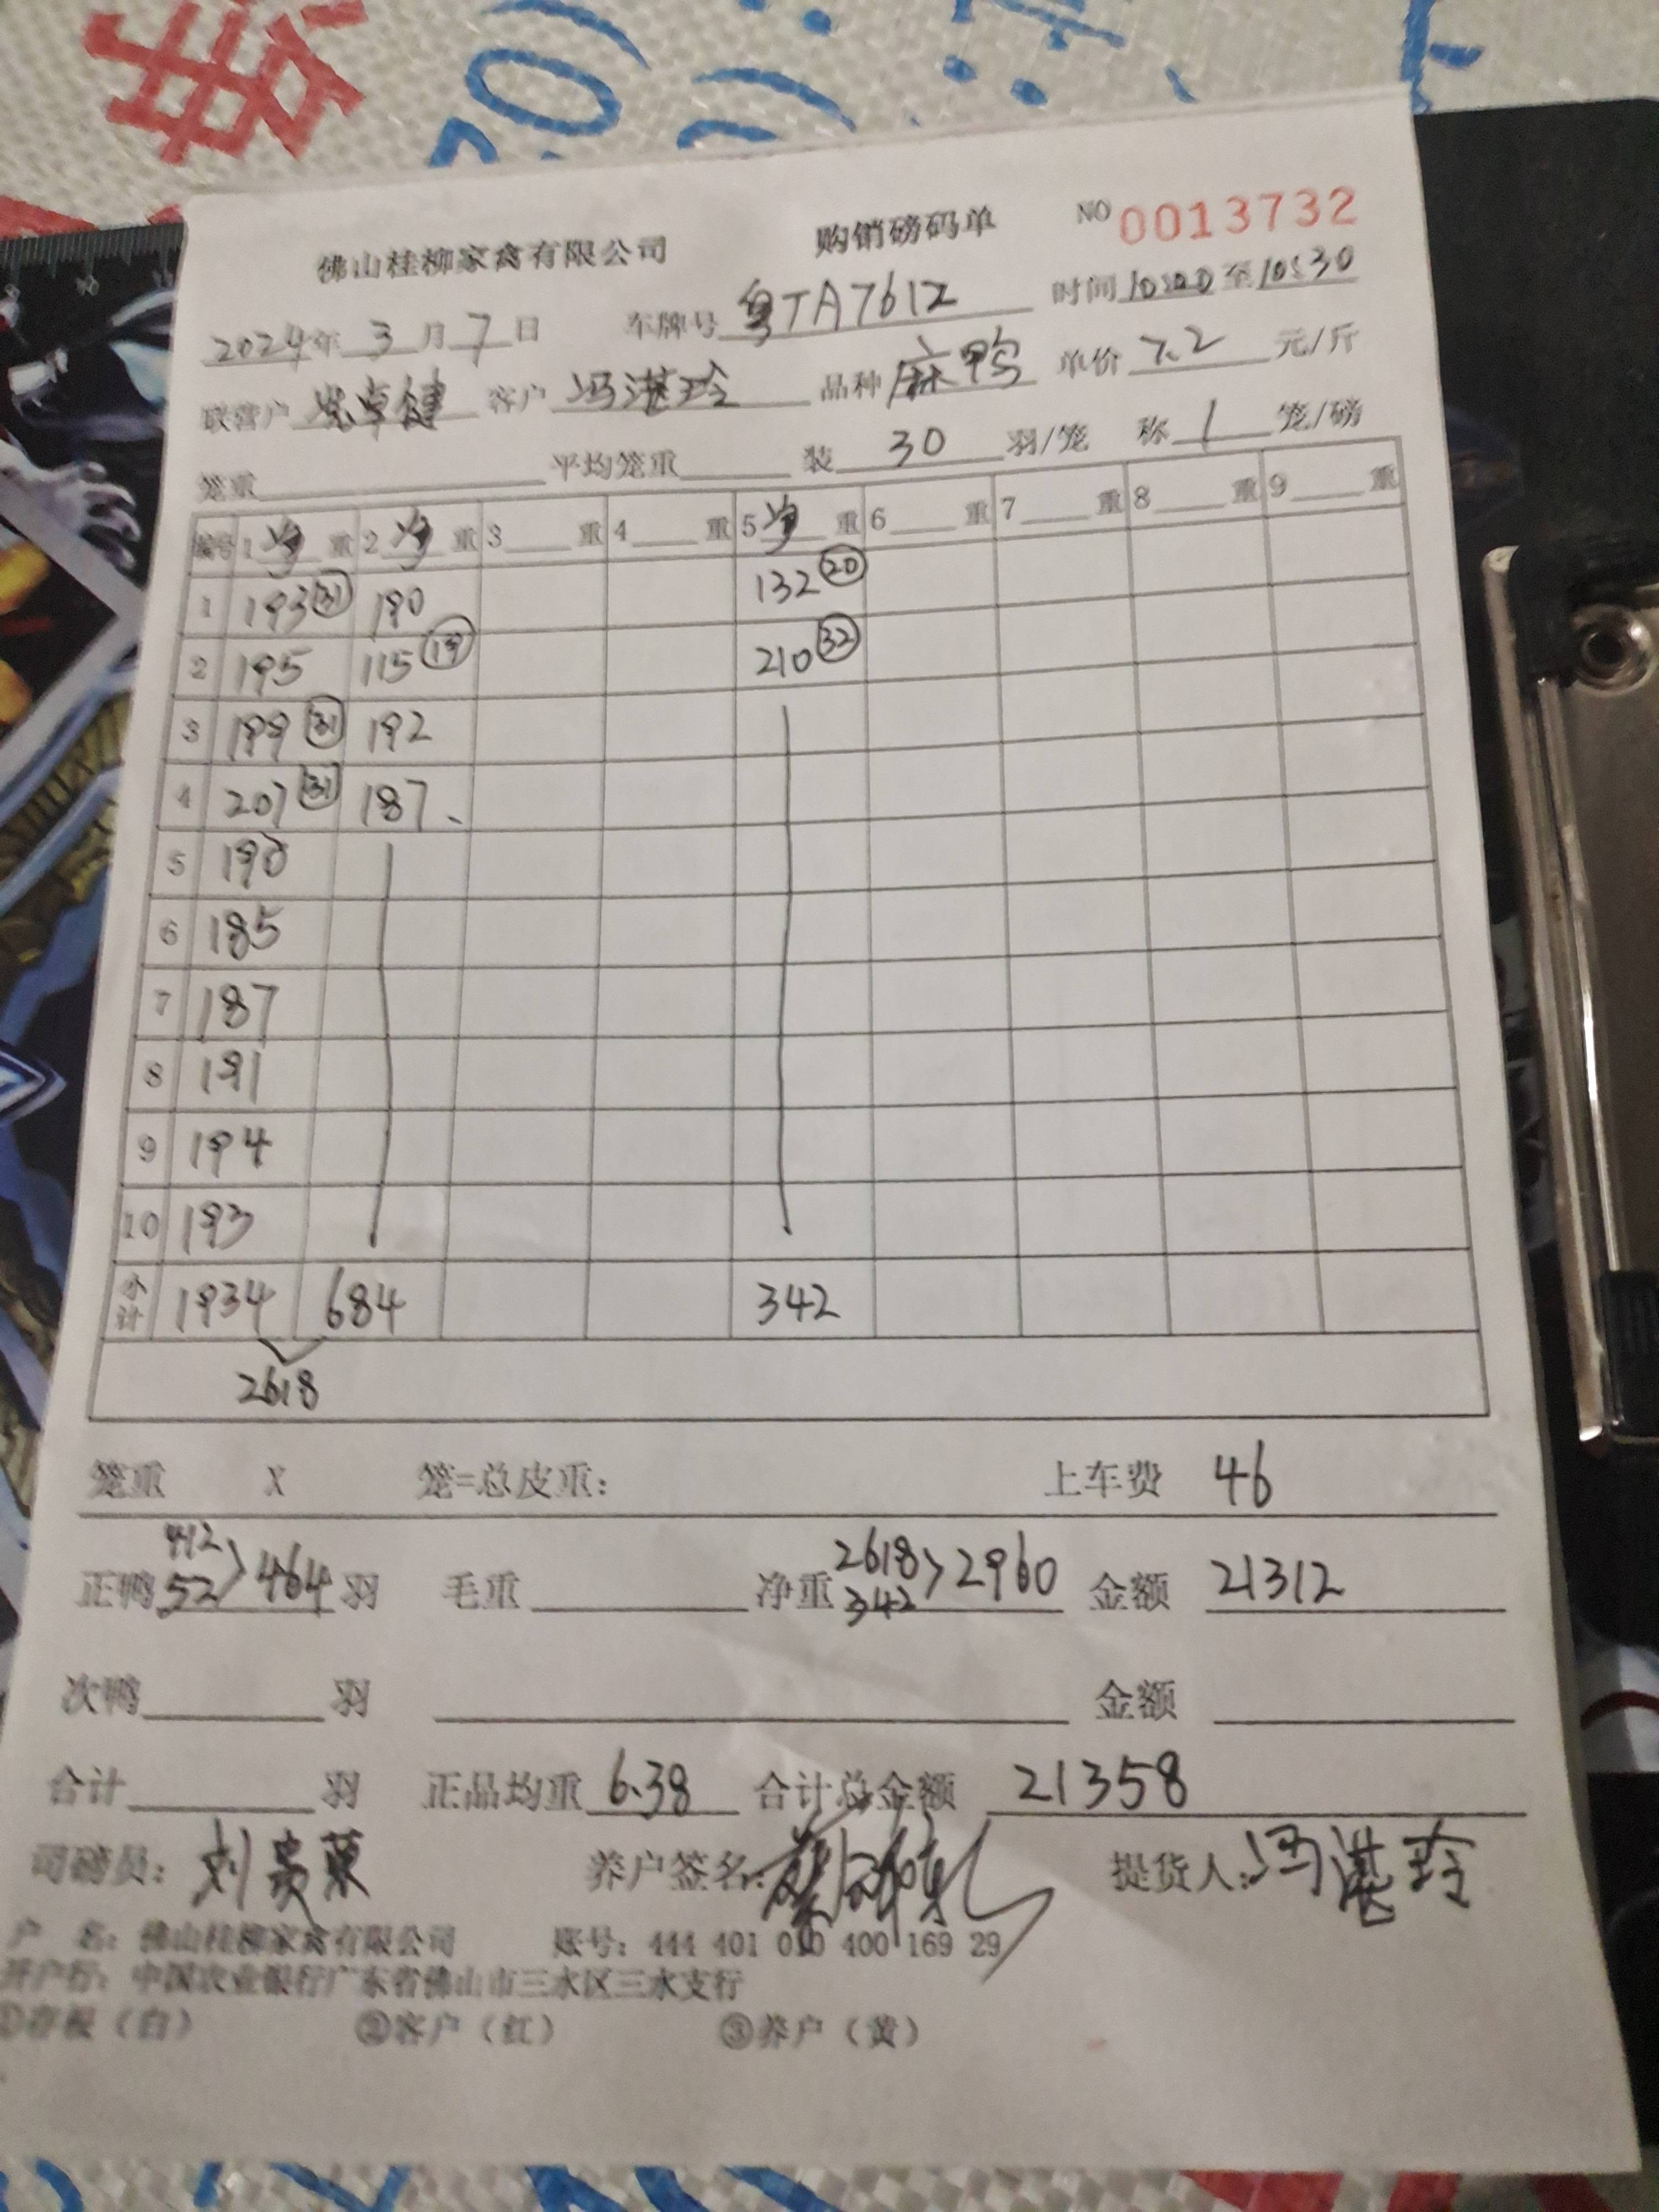 佛山桂柳家禽有限公司 购销磅码单 NO 0013732
2024年 3 月 7 日 车牌号 粤TA7612 时间 10:00 至 10:30
联营户 卓健 客户 冯湛玲 品种 麻鸭 单价 7.2 元/斤
笼重 平均笼重 装 30 羽/笼 称 1 笼/磅
编号 1 净 重 2 净 重 3 重 4 重 5 净 重 6 重 7 重 8 重 9 重
1 193 31 190 132 20
2 195 115 19 210 32
3 199 31 192
4 207 31 187
5 190
6 185
7 187
8 191
9 194
10 193
小计 1934 684 342
2618
笼重 X 笼=总皮重: 上车费 46
正鸭 412 52 > 464 羽 毛重 净重 2618 342 > 2960 金额 21312
次鸭 羽 金额
合计 羽 正品均重 6.38 合计总金额 21358
司磅员: 刘 养户签名: 提货人: 冯湛玲
户 名: 佛山桂柳家禽有限公司 账号: 444 401 010 400 169 29
开户行: 中国农业银行广东省佛山市三水区三水支行
①存根(白) ②客户(红) ③养户(黄)